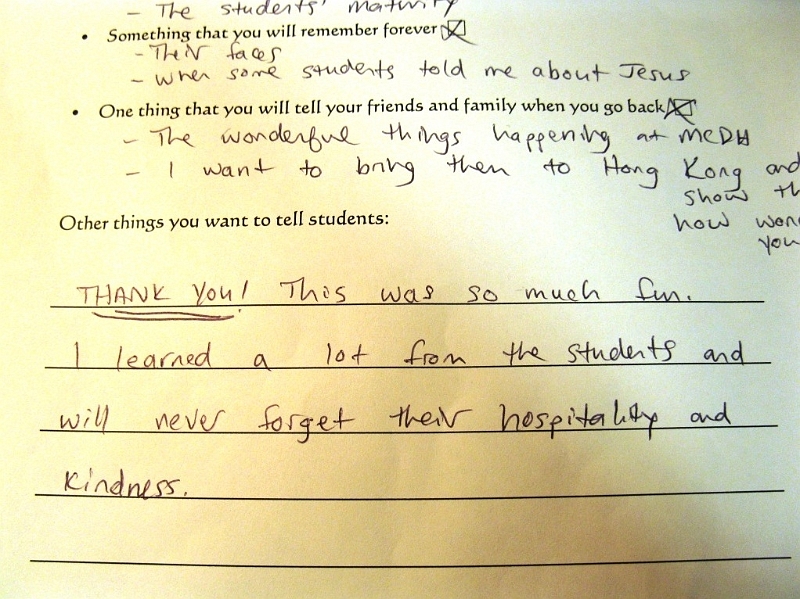 - The students' maturity
• Something that you will remember forever
- Their faces
- when some students told me about Jesus
• One thing that you will tell your friends and family when you go back
- The wonderful things happening at MCDH
- I want to bring them to Hong Kong and
show th
how won
you
Other things you want to tell students:
THANK YOU! This was so much fun.
I learned a lot from the students and
will never forget their hospitality and
kindness.